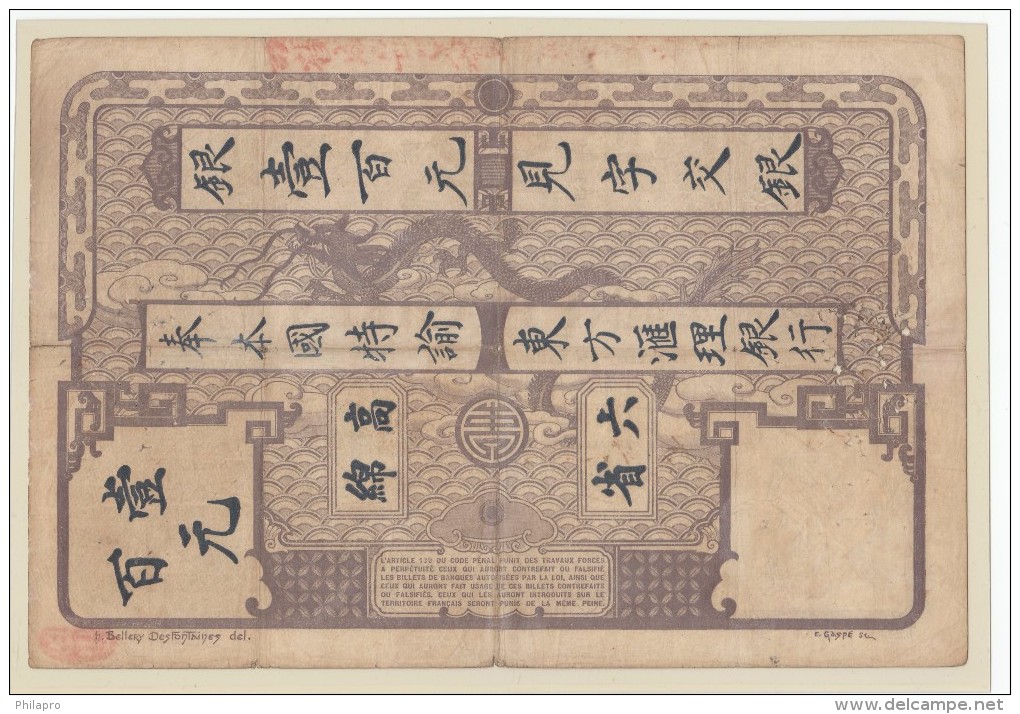 銀壹百元
見字交銀
奉本國特諭
東方滙理銀行
高綿
六省
壹百元
L'ARTICLE 139 DU CODE PÉNAL PUNIT DES TRAVAUX FORCÉS
A PERPÉTUITÉ CEUX QUI AURONT CONTREFAIT OU FALSIFIÉ
LES BILLETS DE BANQUES AUTORISÉES PAR LA LOI, AINSI QUE
CEUX QUI AURONT FAIT USAGE DE CES BILLETS CONTREFAITS
OU FALSIFIÉS. CEUX QUI LES AURONT INTRODUITS SUR LE
TERRITOIRE FRANÇAIS SERONT PUNIS DE LA MÊME PEINE.
h. Bellery Desfontaines del.
Philapro
delcampe.net